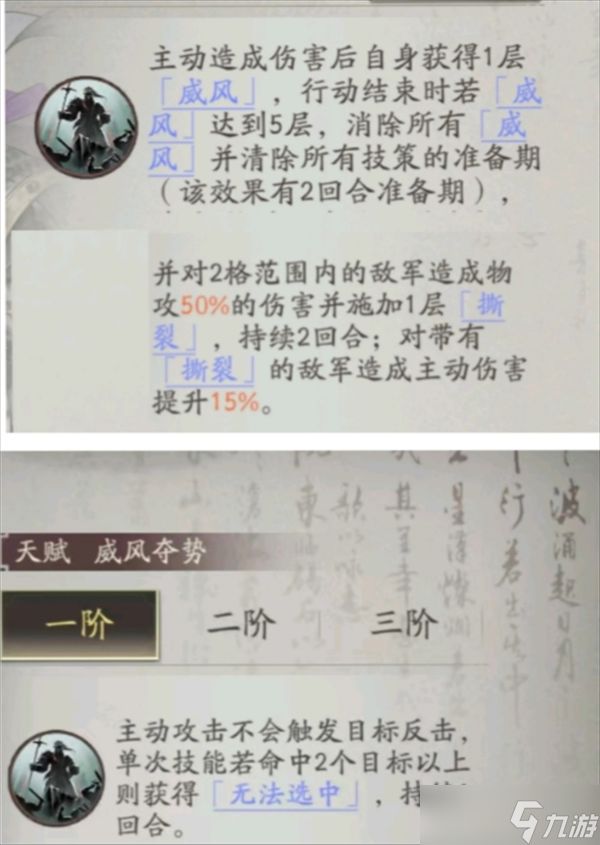 主动造成伤害后自身获得1层
「威风」,行动结束时若「威
风」达到5层,消除所有「威
风」并清除所有技策的准备期
(该效果有2回合准备期),
并对2格范围内的敌军造成物
攻50%的伤害并施加1层「撕
裂」,持续2回合;对带有
「撕裂」的敌军造成主动伤害
提升15%。
天赋 威风夺势
一阶 二阶 三阶
主动攻击不会触发目标反击,
单次技能若命中2个目标以上
则获得「无法选中」,持续
回合。
九游